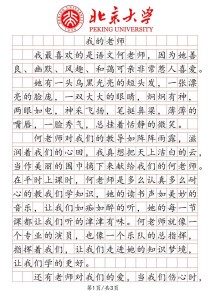 北京大学
PEKING UNIVERSITY
我的老师
我最喜欢的是语文何老师，因为她善
良、幽默、风趣、和蔼可亲非常惹人喜爱。
她有一头乌黑光亮的短头发，一张漂
亮的脸庞，一双大大的眼睛，炯炯有神，
两眼如电，神采飞扬，笔挺鼻梁，薄薄的
嘴唇，一脸秀气，总挂着恬静的微笑。
何老师对我们的教导如阵阵雨露，滋
润着我们的心田，我真想把天上洁白的云
当作美丽的围巾摘下来献给我们的何老师。
在平时上课时，何老师是多么认真多么耐
心的教我们学知识，她的读书声如美妙的
音乐，让我们如痴如醉的听，她的每一节
课都让我们听的津津有味。何老师就像一
个专业的演员，也像一个乐队的总指挥，
指挥着我们，让我们走进她的知识梦境，
让我们学的更好。
还有老师对我们的爱，当我们伤心时，
第1页/共3页